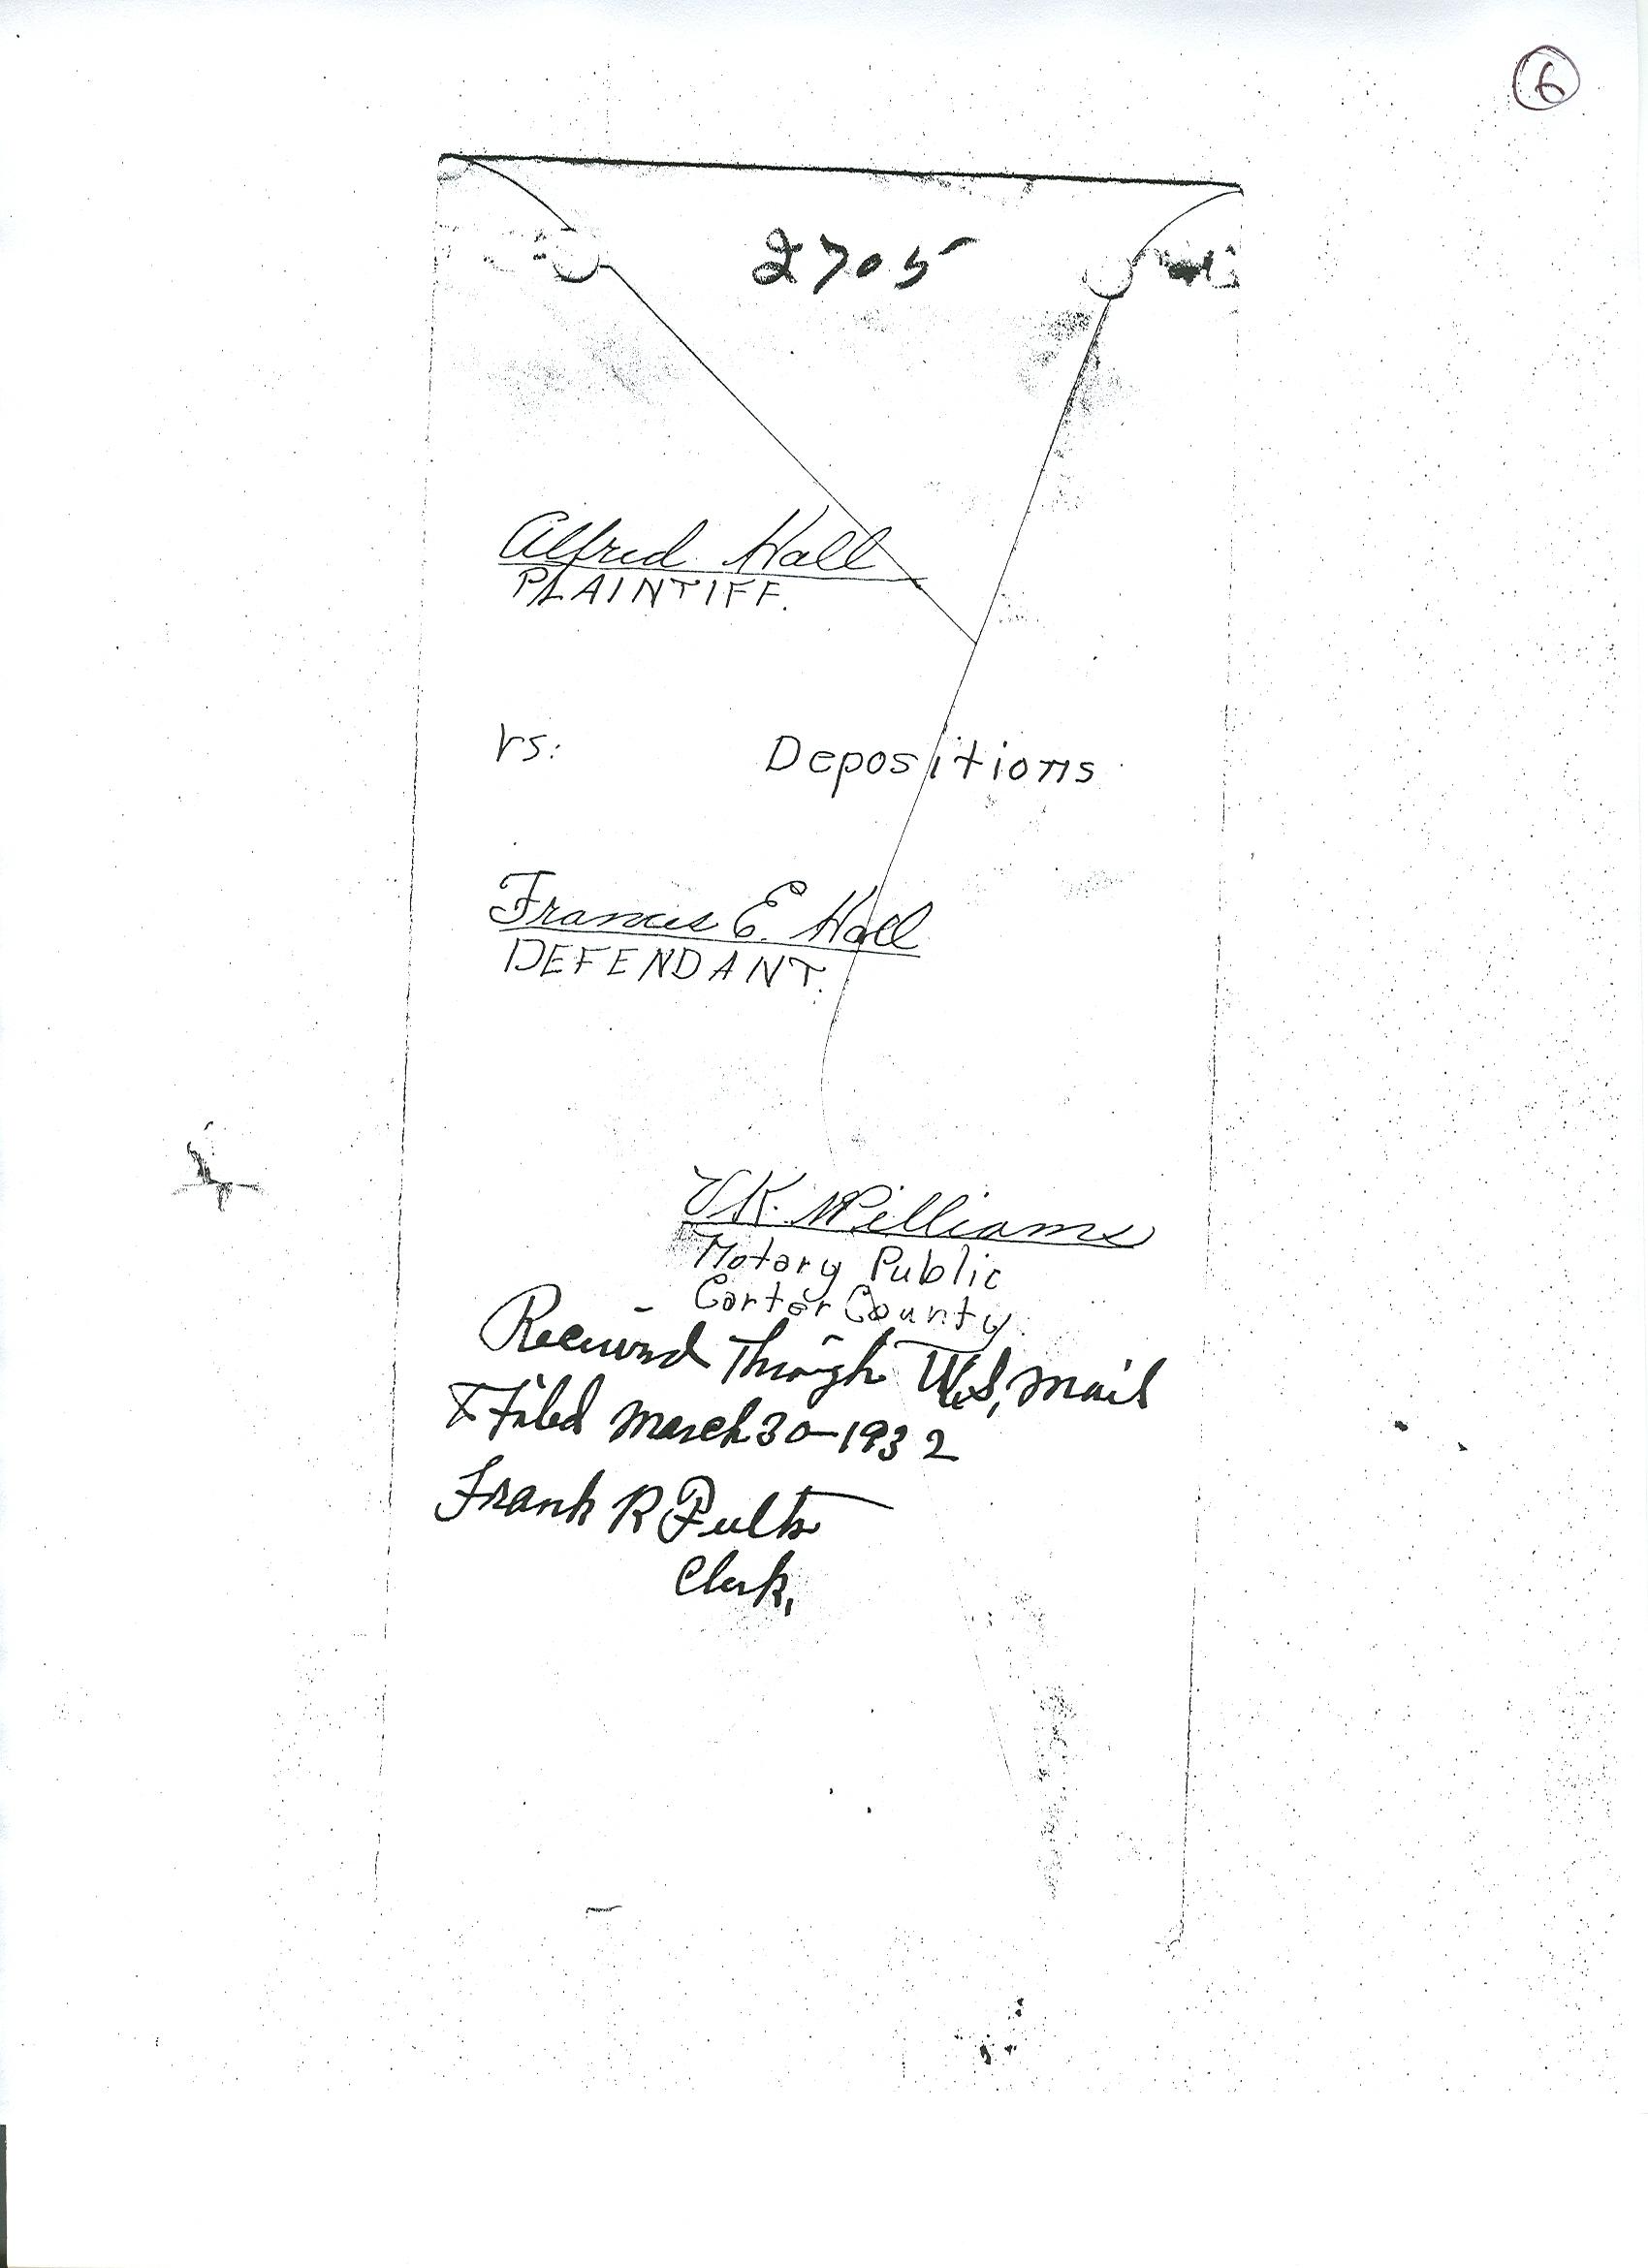 6
2705
Alfred Hall
PLAINTIFF.
vs: Depositions
Francis E. Hall
DEFENDANT.
V K. Williams
Notary Public
Carter County.
Received Through U.S. Mail
& Filed March 30-1932
Frank R Fults
Clerk,